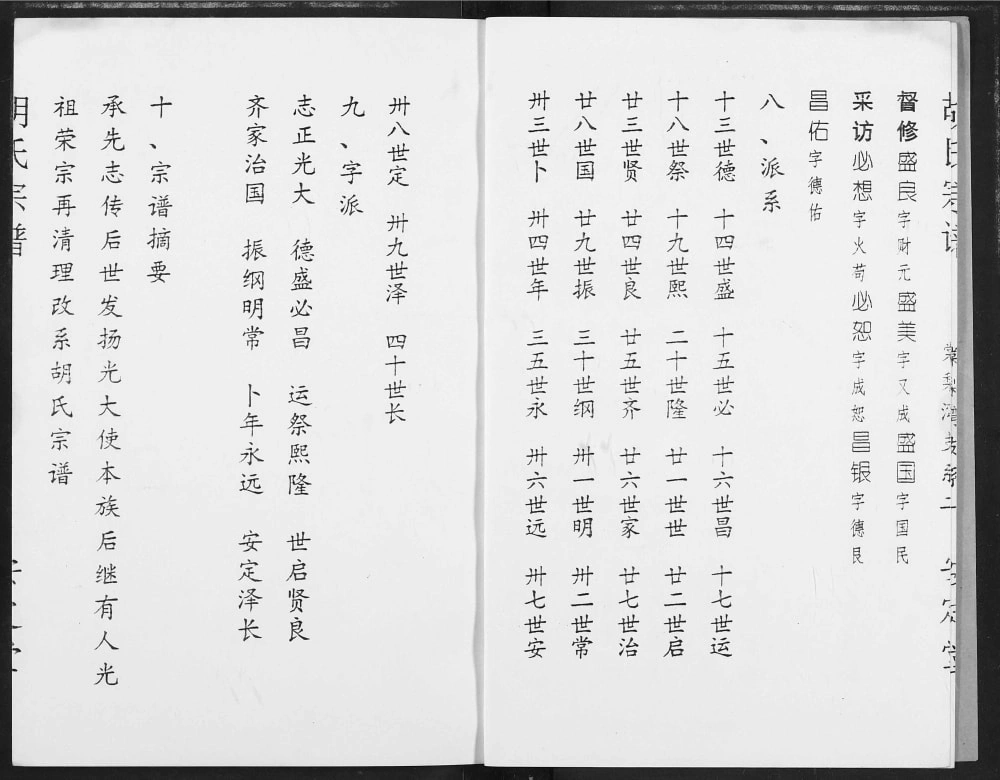 胡氏宗谱 棠梨湾支系二 安定堂
督修 盛良字财元 盛美字又成 盛国字国民
采访 必想字火苟 必恕字成恕 昌银字德艮
昌佑字德佑
八、派系
十三世德 十四世盛 十五世必 十六世昌 十七世运
十八世祭 十九世熙 二十世隆 廿一世世 廿二世启
廿三世贤 廿四世良 廿五世齐 廿六世家 廿七世治
廿八世国 廿九世振 三十世纲 卅一世明 卅二世常
卅三世卜 卅四世年 三五世永 卅六世远 卅七世安
卅八世定 卅九世泽 四十世长
九、字派
志正光大 德盛必昌 运祭熙隆 世启贤良
齐家治国 振纲明常 卜年永远 安定泽长
十、宗谱摘要
承先志传后世发扬光大使本族后继有人光
祖荣宗再清理改系胡氏宗谱
胡氏宗谱